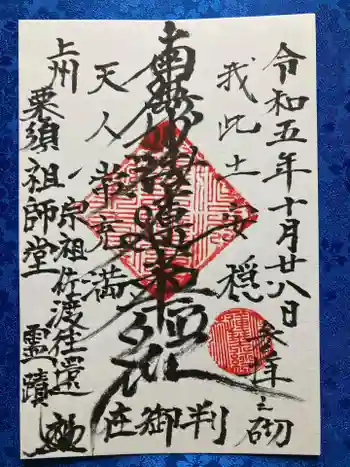 令和五年十月廿八日
参拝之砌
我此土安穏
南無妙法蓮華経
天人常充満
在御判
宗祖佐渡往還
霊蹟
上州
栗須
祖師堂